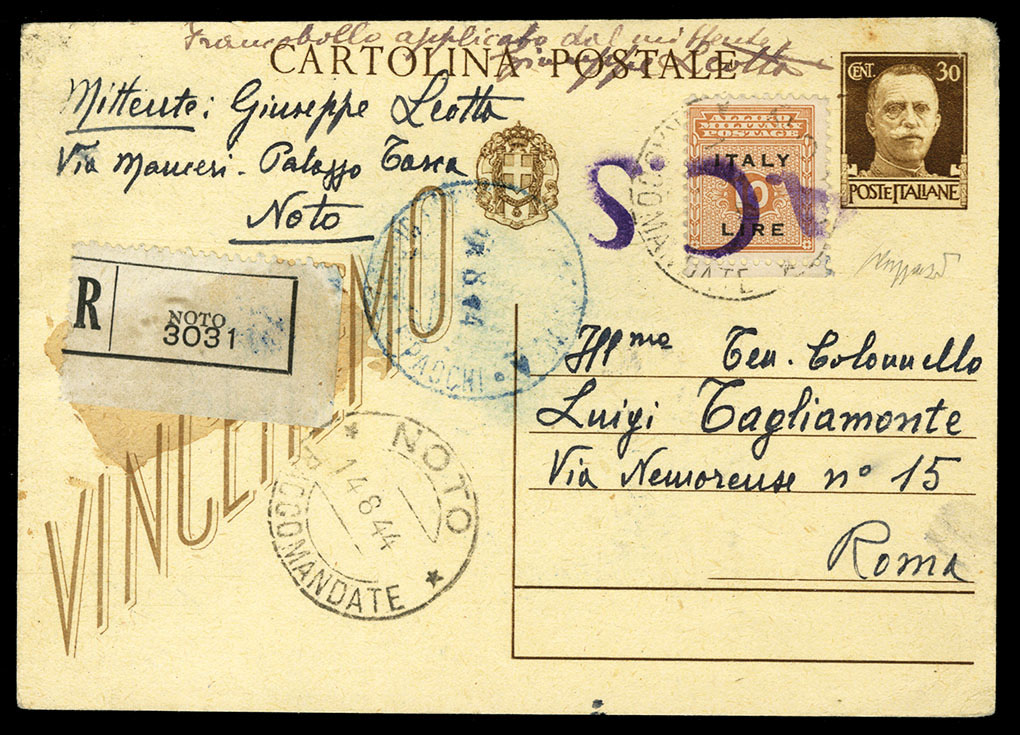 Francobollo applicato dal mittente
Giuseppe Leotta
CARTOLINA POSTALE
Mittente: Giuseppe Leotta
Via Manceri - Palazzo Tasca
Noto
CENT. 30
POSTE ITALIANE
ALLIED
MILITARY
POSTAGE
ITALY
10
LIRE
R
NOTO
3031
VINCEREMO
8 44
PACCHI
NOTO
14 8 44
RACCOMANDATE
Ill.mo Ten. Colonnello
Luigi Tagliamonte
Via Nemorense n° 15
Roma